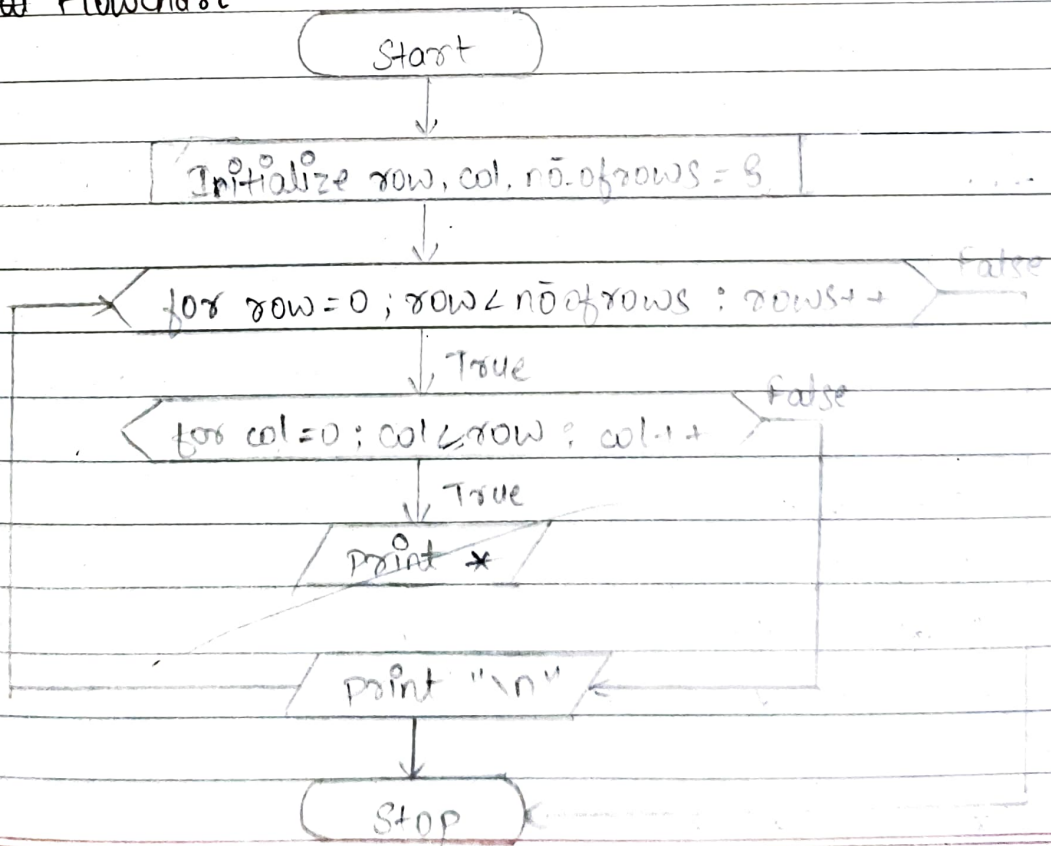 Flowchart
Start
Initialize row, col, no.ofrows = 9
for row=0 ; row < no ofrows ; rows++
False
True
for col =0 ; col < row ; col++
False
True
print *
print "\n"
Stop